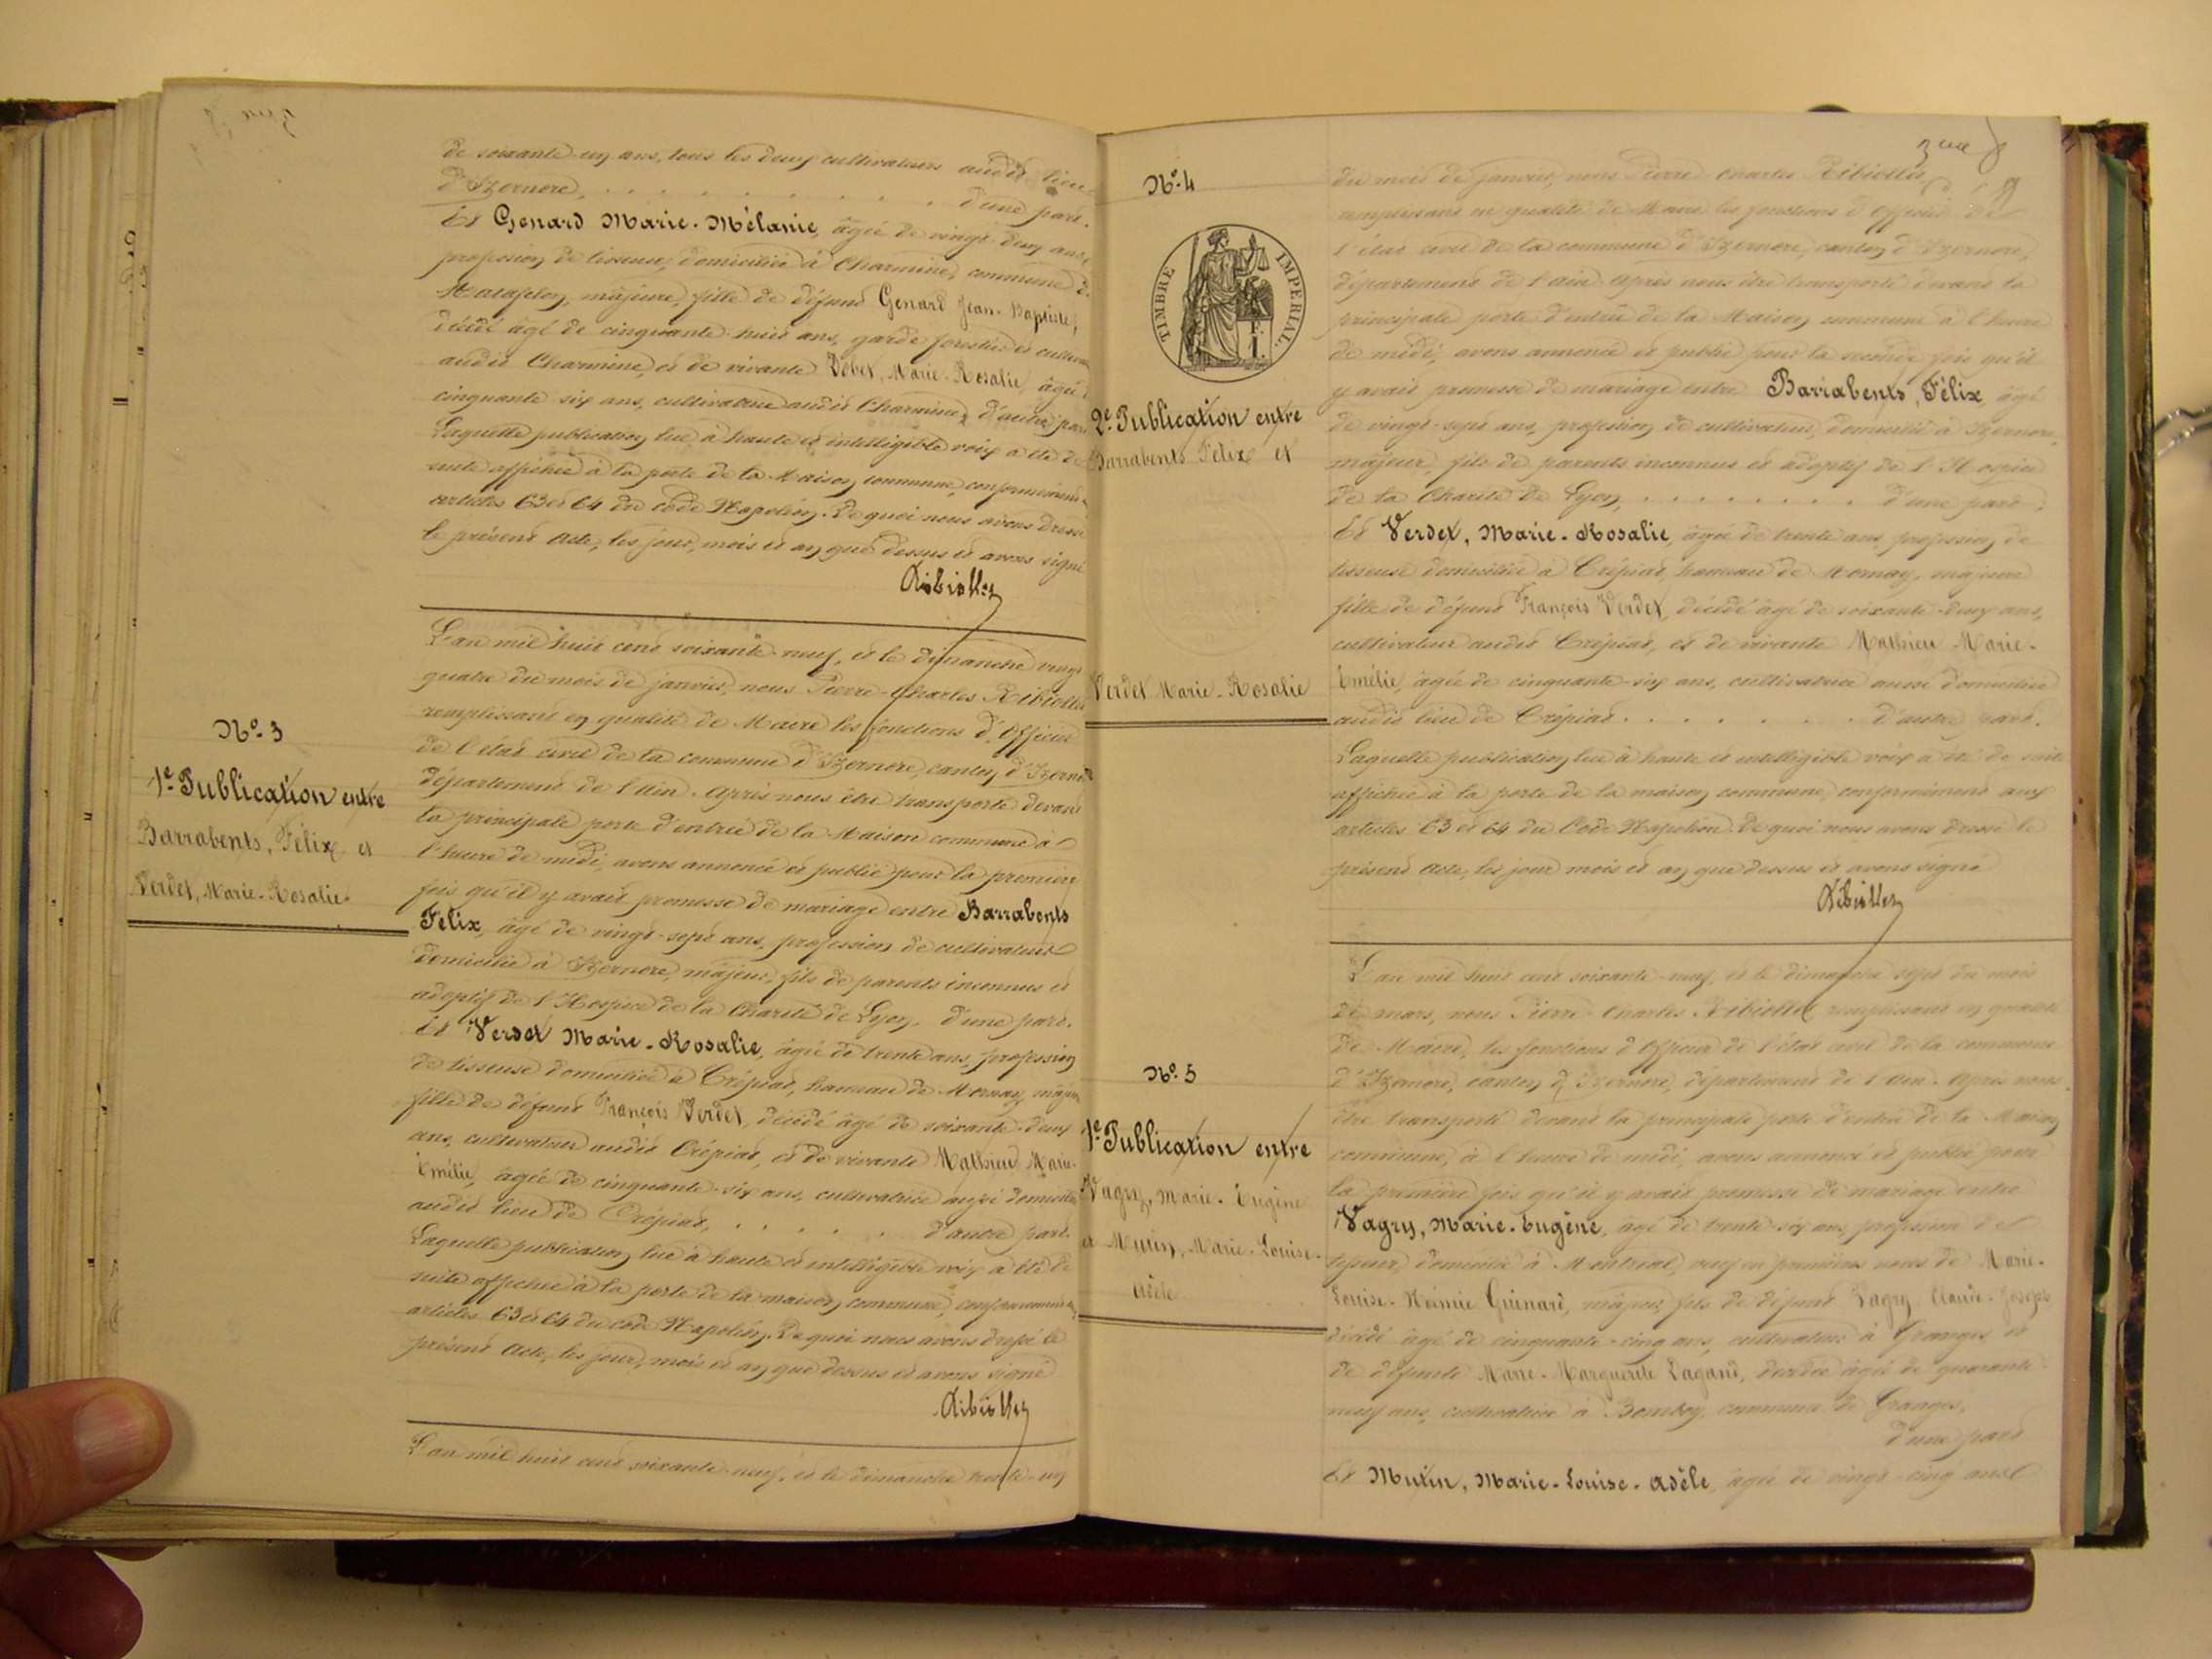 de soixante-un ans, tous les deux cultivateurs audit lieu
d'Izernore, . . . . . . . . . d'une part.
Et Genard Marie-Mélanie, âgée de vingt-deux ans,
profession de tisseuse, domiciliée à Charmine, commune de
Matafelon, majeure, fille de défunt Genard Jean-Baptiste,
décédé âgé de cinquante-huit ans, garde forestier et
audit Charmine, et de vivante Marie-Rosalie, âgée
cinquante six ans, cultivatrice audit Charmine, d'autre part
Laquelle publication lue à haute et intelligible voix a été de
suite affichée à la porte de la Maison commune, conformément
articles 63 et 64 du Code Napoléon. De quoi nous avons dressé
le présent acte, les jour, mois et an que dessus et avons signé
Ribiollet
N° 3
1e Publication entre
Barrabents, Félix et
Verdet, Marie-Rosalie
L'an mil huit cent soixante-neuf, et le dimanche vingt
quatre du mois de janvier, nous Pierre-Charles Ribiollet
remplissant en qualité de Maire les fonctions d'Officier
de l'état civil de la commune d'Izernore, canton d'Izernore
département de l'Ain. Après nous être transporté devant
la principale porte d'entrée de la Maison commune à
l'heure de midi, avons annoncé et publié pour la première
fois qu'il y avait promesse de mariage entre Barrabents
Félix, âgé de vingt-sept ans, profession de cultivateur
domicilié à Izernore, majeur, fils de parents inconnus et
adoptif de l'Hospice de la Charité de Lyon, d'une part.
Et Verdet Marie-Rosalie, âgée de trente ans, profession
de tisseuse domiciliée à Crépiat, hameau de Mornay, majeure
fille de défunt François Verdet, décédé âgé de soixante-deux
ans, cultivateur audit Crépiat, et de vivante Mathieu Marie-
Emélie, âgée de cinquante-six ans, cultivatrice aussi domiciliée
audit lieu de Crépiat, . . . . . d'autre part.
Laquelle publication lue à haute et intelligible voix a été de
suite affichée à la porte de la maison commune, conformément
articles 63 et 64 du Code Napoléon. De quoi nous avons dressé le
présent acte, les jour, mois et an que dessus et avons signé
Ribiollet
L'an mil huit cent soixante-neuf, et le dimanche trente-un
N° 4
TIMBRE IMPERIAL.
2e Publication entre
Barrabents Félix et
Verdet Marie-Rosalie
du mois de janvier, nous Pierre Charles Ribiollet,
remplissant en qualité de Maire les fonctions d'Officier de
l'état civil de la commune d'Izernore, canton d'Izernore,
département de l'Ain. Après nous être transporté devant la
principale porte d'entrée de la Maison commune à l'heure
de midi, avons annoncé et publié pour la seconde fois qu'il
y avait promesse de mariage entre Barrabents, Félix, âgé
de vingt-sept ans, profession de cultivateur, domicilié à Izernore,
majeur, fils de parents inconnus et adoptif de l'Hospice
de la Charité de Lyon, . . . . . . . . d'une part,
Et Verdet, Marie-Rosalie, âgée de trente ans, profession de
tisseuse domiciliée à Crépiat, hameau de Mornay, majeure
fille de défunt François Verdet, décédé âgé de soixante-deux ans,
cultivateur audit Crépiat, et de vivante Mathieu Marie-
Emélie, âgée de cinquante-six ans, cultivatrice aussi domiciliée
audit lieu de Crépiat . . . . . . . d'autre part.
Laquelle publication lue à haute et intelligible voix a été de suite
affichée à la porte de la maison commune, conformément aux
articles 63 et 64 du Code Napoléon. De quoi nous avons dressé le
présent acte, les jour mois et an que dessus et avons signé
Ribiollet
N° 5
1e Publication entre
Vagry, Marie-Eugène
et Mutin, Marie-Louise-
Adèle
L'an mil huit cent soixante-neuf, et le dimanche sept du mois
de mars, nous Pierre-Charles Ribiollet remplissant en qualité
de Maire, les fonctions d'Officier de l'état civil de la commune
d'Izernore, canton d'Izernore, département de l'Ain. Après nous
être transporté devant la principale porte d'entrée de la Maison
commune, à l'heure de midi, avons annoncé et publié pour
la première fois qu'il y avait promesse de mariage entre
Vagry, Marie-Eugène, âgé de trente-six ans, profession de
domicilié à Montréal, veuf en premières noces de Marie-
Louise-Noémie Guénard, majeur, fils de défunt Vagry Claude-Joseph
décédé âgé de cinquante-cinq ans, cultivateur à Granges et
de défunte Marie-Marguerite Lagand, décédée âgée de quarante
neuf ans, cultivatrice à Bombois, commune de Granges,
d'une part
Et Mutin, Marie-Louise-Adèle, âgée de vingt-cinq ans